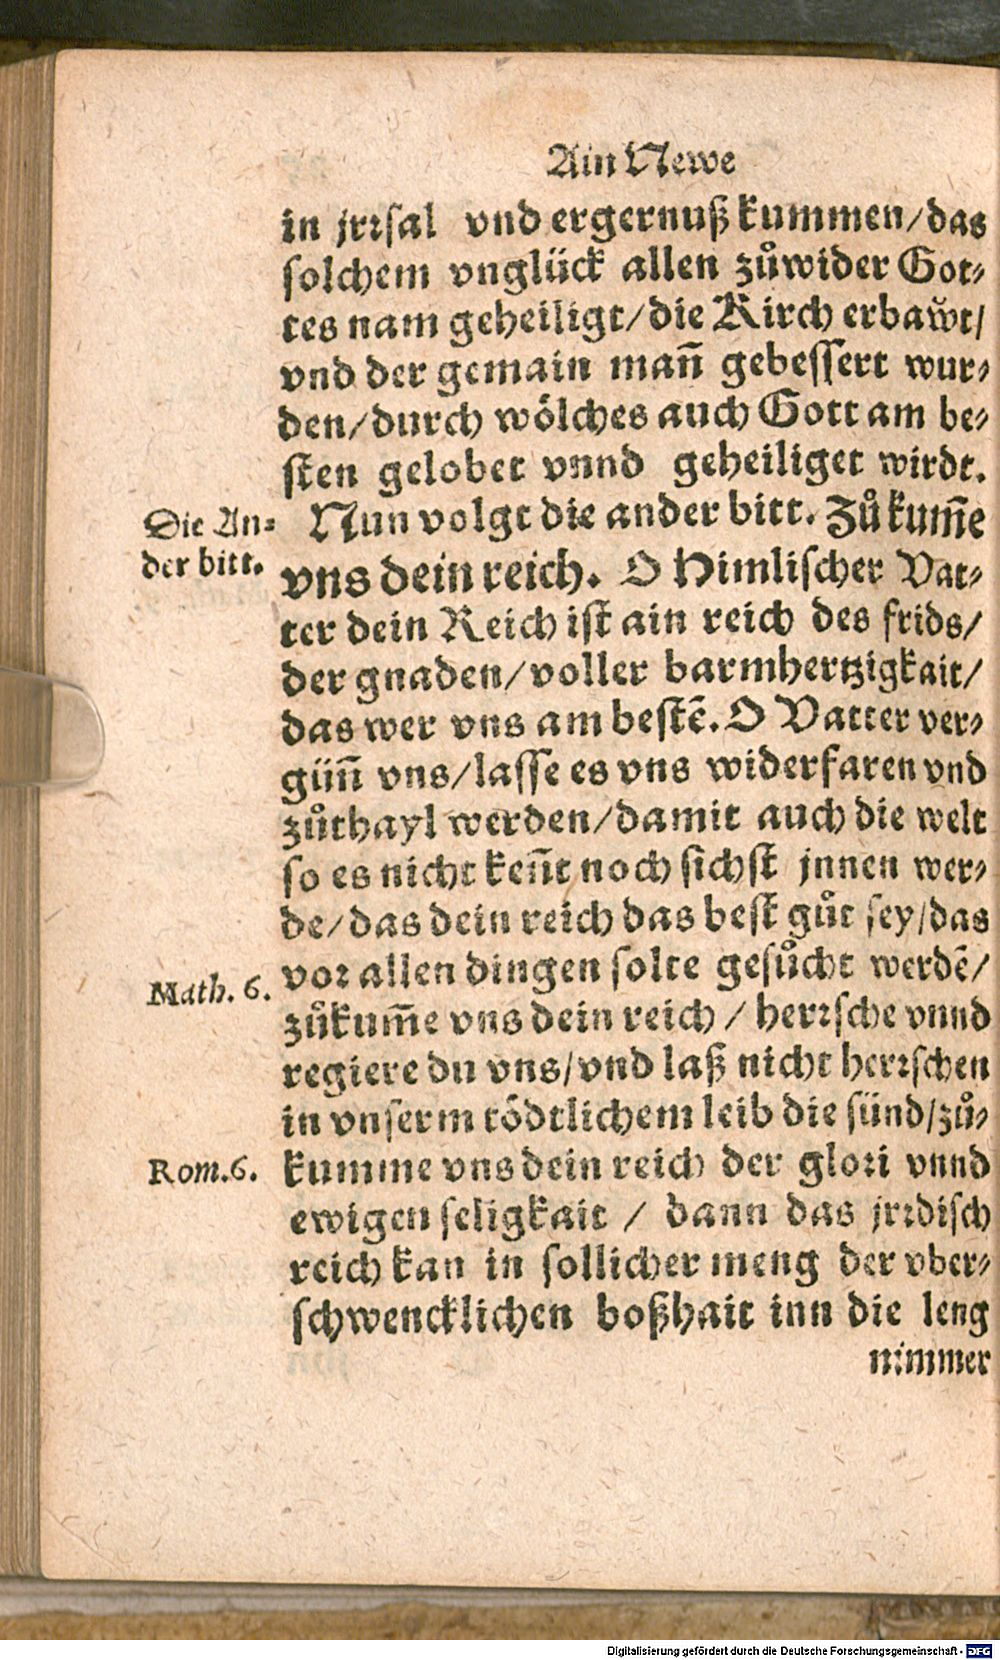 Ain Newe
in jrꝛsal vnd ergernuß kummen/das
solchem vnglück allen zůwider Got⸗
tes nam geheiligt/die Kirch erbaẘt/
vnd der gemain mañ gebessert wur⸗
den/durch wölches auch Gott am be⸗
sten gelobet vnnd geheiliget wirdt.
Die An⸗
der bitt.
Nun volgt die ander bitt. Zů kum̃e
vns dein reich. O Himlischer Vat⸗
ter dein Reich ist ain reich des frids/
der gnaden/voller barmhertzigkait/
das wer vns am bestẽ. O Vatter ver⸗
güñ vns/lasse es vns widerfaren vnd
zůthayl werden/damit auch die welt
so es nicht keñt noch sichst jnnen wer⸗
de/das dein reich das best gůt sey/das
Math. 6.
voꝛ allen dingen solte gesůcht werdẽ/
zůkum̃e vns dein reich/herꝛsche vnnd
regiere du vns/vnd laß nicht herꝛschen
in vnserm tödtlichem leib die sünd/zů⸗
Rom.6.
kumme vns dein reich der gloꝛi vnnd
ewigen seligkait/dann das jrꝛdisch
reich kan in sollicher meng der vber⸗
schwencklichen boßhait inn die leng
nimmer
Digitalisierung gefördert durch die Deutsche Forschungsgemeinschaft - DFG